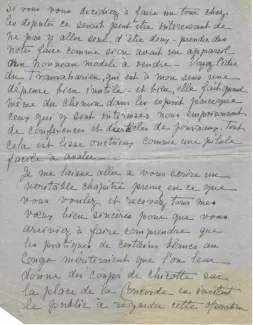 si vous vous décidiez à faire un tour chez
les députés ce serait peut-être intéressant de
ne pas y aller seul, d'être deux - prendre des
notre faire comme si on avait un appareil
d'un nouveau model à vendre - Voyez l'idée
du Tramaharien, qui est à mon sens une
dépense bien inutile - et bien, elle fait quand
même du chemin dans les esprits parceque
ceux qui y sont intéressés nous empruntent
de conférences et d'articles de journaux. Tout
cela est lisse onctueux comme une pilule
facile à avaler.
Je me laisse aller à vous écrire un
véritable chapitre prenez en ce que
vous voulez et recevez tous mes
vœux bien sincères pour que vous
arriviez à faire comprendre que
les pratiques de certains blancs au
Congo mériteraient que l'on leur
donne des coups de chicotte sur
la place de la Concorde en invitant
le public à regarder cette opération